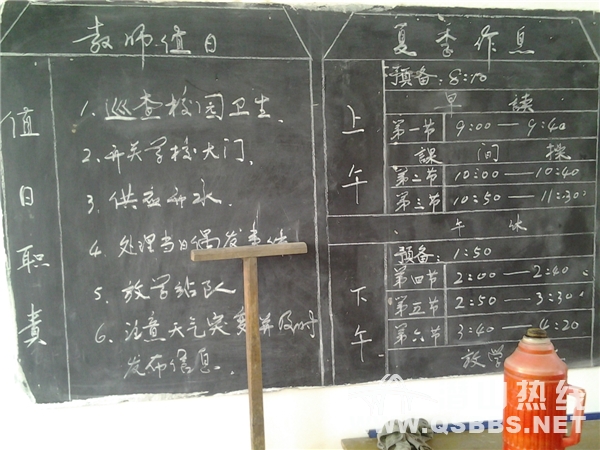 教师值日
值日职责
1. 巡查校园卫生.
2. 开关学校大门.
3. 供应开水.
4. 处理当日偶发事件
5. 放学站队
6. 注意天气突变并及时
发布信息.
夏季作息
上午
预备: 8:10
早 读
第一节 9:00—9:40
課 间 操
第二节 10:00—10:40
第三节 10:50—11:30
午 休
下午
预备: 1:50
第四节 2:00—2:40
第五节 2:50—3:30
第六节 3:40—4:20
放学
热线
WWW.QSBBS.NET